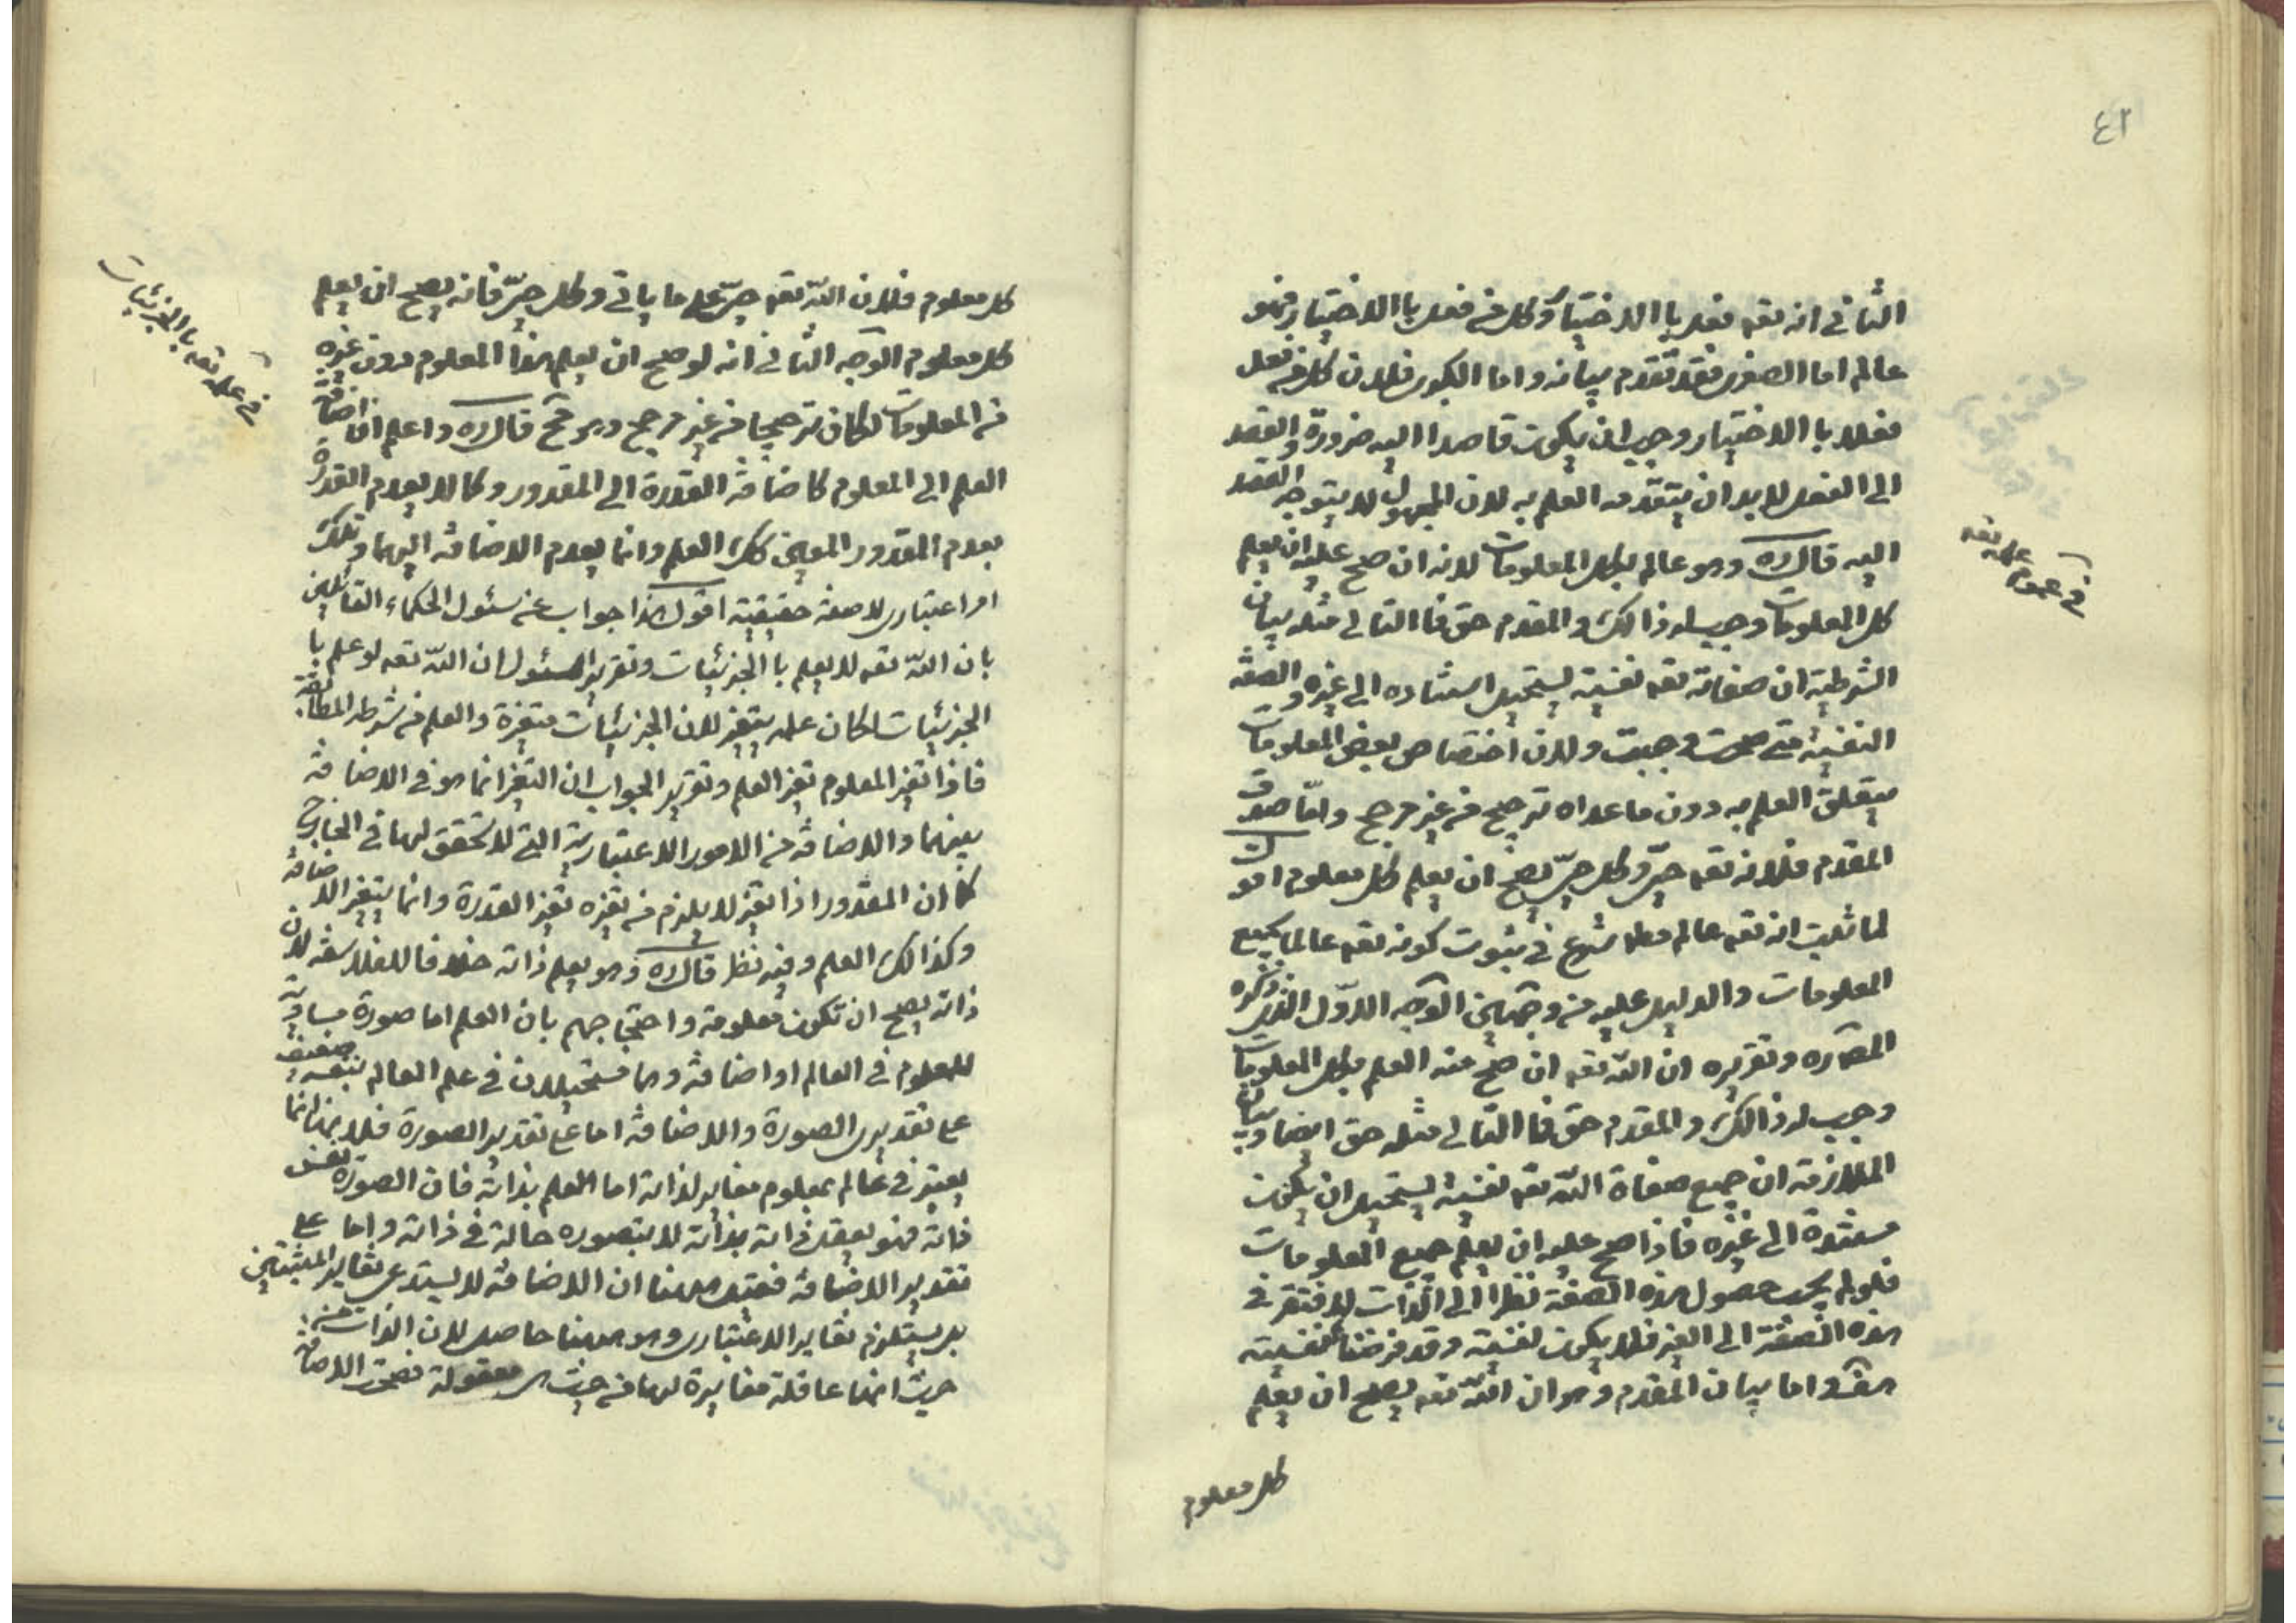 ٤٢
الثانى انه تعه فعل با الاختيار وكل من فعل با الاختيار فهو
عالم اما الصغرى فقد تقدم بيانه واما الكبرى فلان كل من فعل
فعلا با الاختيار وجب ان يكون قاصدا اليه ضرورة والقصد
الى الفعل لابد ان يتقدمه العلم به لان المجهول لا يتوجه القصد
اليه قال ره وهو عالم بكل المعلومات لانه ان صح عليه ان يعلم
كل المعلومات وجب له ذالك والمقدم حق فا التالى مثله بيان
الشرطية ان صفاته تعه نفسية يستحيل استناده الى غيره والصفة
النفسية متى صحت وجبت ولان اختصاص بعض المعلومات
بتعلق العلم به دون ماعداه ترجيح من غير مرجح وامّا صدق
المقدم فلانه تعه حىّ وكل حىّ يصح ان يعلم كل معلوم اقول
لما ثبت انه تعه عالم مطلقا شرع فى ثبوت كونه تعه عالما بجميع
المعلومات والدليل عليه من وجهين الوجه الاوّل الذى ذكره
المصره وتقريره ان اللّه تعه ان صح منه العلم بكل المعلومات
وجب له ذالك والمقدم حق فا التالى مثله حق ايضا وبيان
الملازمة ان جميع صفاة اللّه تعه نفسية يستحيل ان يكون
مستندة الى غيره فاذا صح عليه ان يعلم جميع المعلومات
فلو لم يجب حصول هذه الصفة نظرا الى الذات لافتقر فى
هذه الصفة الى الغير فلا يكون نفسية وقد فرضنا نفسية
هف واما بيان المقدم وهو ان اللّه تعه يصح ان يعلم
كل معلوم
فى عموم علمه تعه
كل معلوم فلان اللّه تعه حىّ على ما ياتى وكل حىّ فانه يصح ان يعلم
كل معلوم الوجه الثانى انه لو صح ان يعلم هذا المعلوم دون غيره
من المعلومات لكان ترجيحا من غير مرجح وهو مح قال ره واعلم ان اضافة
العلم الى المعلوم كاضافة القدرة الى المقدور وكما لا يعدم القدرة
بعدم المقدور المعين كك العلم وانما يعدم الاضافة اليهما وتلك
امر اعتبارى لا صفة حقيقية اقول هذا جواب عن سئول الحكماء القائلين
بان اللّه تعه لا يعلم با الجزئيات وتقرير السئول ان اللّه تعه لو علم با
الجزئيات لكان علمه يتغير لان الجزئيات متغيرة والعلم من شرطه المطابقة
فاذا تغير المعلوم تغير العلم وتقرير الجواب ان التغير انما هو فى الاضافة
بينهما والاضافة من الامور الاعتبارية التى لا تحقق لها فى الخارج
كما ان المقدور اذا تغير لا يلزم من تغيره تغير القدرة وانما يتغير الاضافة
وكذالك العلم وفيه نظر قال ره وهو يعلم ذاته خلافا للفلاسفة لان
ذاته يصح ان تكون معلومة واحتجاجهم بان العلم اما صورة مساوية
للمعلوم فى العالم او اضافة وهما مستحيلان فى علم العالم بنفسه ضعيف
على تقديرى الصورة والاضافة اما على تقدير الصورة فلا نها انما
يعتبر فى عالم بمعلوم مغاير لذاته اما العلم بذاته فان الصورة نفس
ذاته فهو يعقل ذاته بذاته لا بتصوره حالة فى ذاته واما على
تقدير الاضافة فقيل هاهنا ان الاضافة لا يستدعى تغاير المثبتين
بل يستلزم تغاير الاعتبارى وهو هاهنا حاصل لان الذات من
حيث انها عاقلة مغايرة لها من حيث هى معقولة فصحت الاضافة
فى علمه تعه با الجزئيات